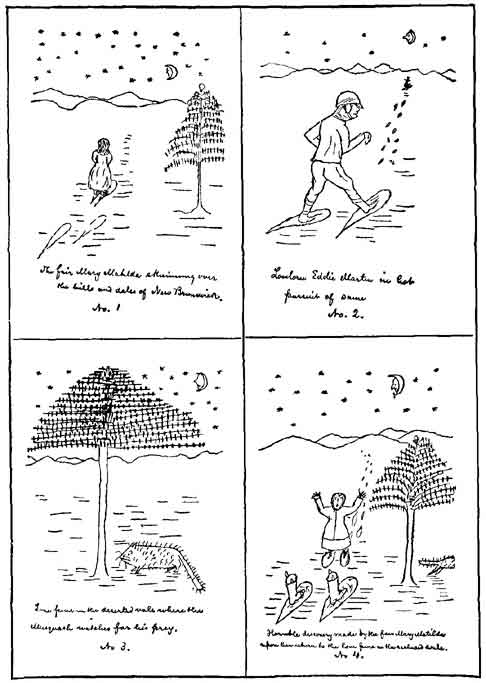 The fair Mary Matilda skimming over
the hills and dales of New Brunswick.
No. 1
Lovlorn Eddie Martin in hot
pursuit of same
No. 2.
Lone pine in the deserted vale where the
Musquash watches for his prey.
No 3.
Horrible discovery made by the fair Mary Matilda
upon her return to the lone pine in the secluded vale.
No 4.